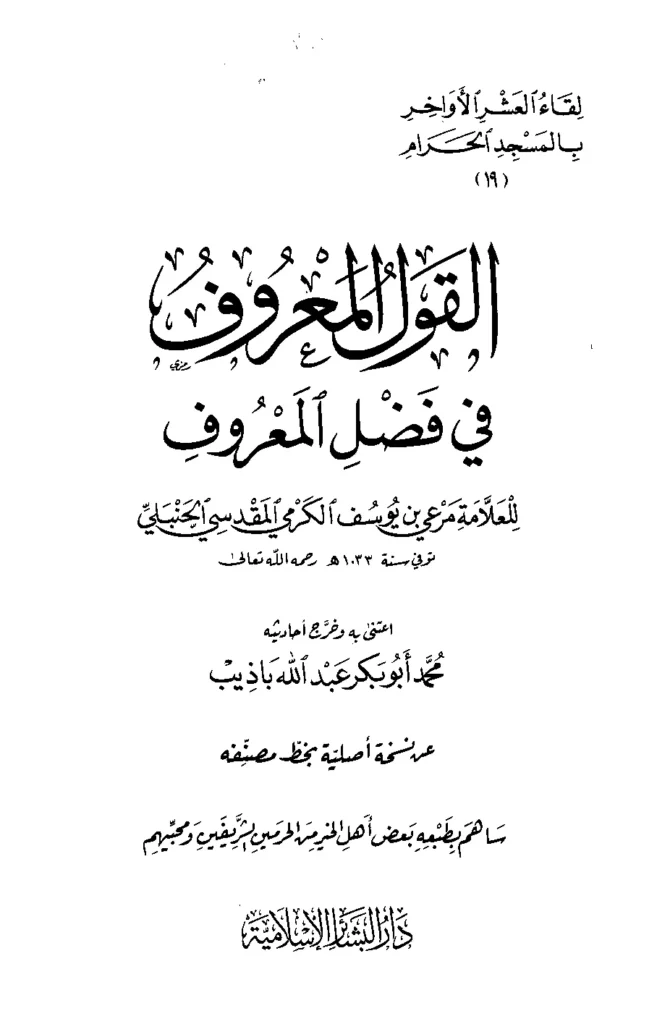 لِقَاءُ ٱلعَشْرِ ٱلأَوَاخِرِ
بِالمَسْجِدِ ٱلحَرَامِ
(١٩)
القَوْلُ المَعْرُوفُ
فِي فَضْلِ ٱلمَعْرُوفِ
لِلْعَلَّامَةِ مَرْعِي بن يُوسُف الكَرْمِي المَقْدِسِي ٱلحَنْبَلِيِّ
توفي سنة ١٠٣٣ هـ رحمه الله تعالى
اعتنى به وخرَّج أحاديثه
مُحَمَّد أَبُو بَكر عَبْد ٱلله بَاذِيبْ
عن نسخة أصلية بخطّ مصنّفه
سَاهَمَ بِطَبْعِهِ بَعض أَهل الخَيْرِ مِنَ الحَرمَيْنِ الشَّرِيفَيْنِ وَمُحِبِّيهِم
دَارُ البَشَائِرِ الإِسْلَامِيَّة